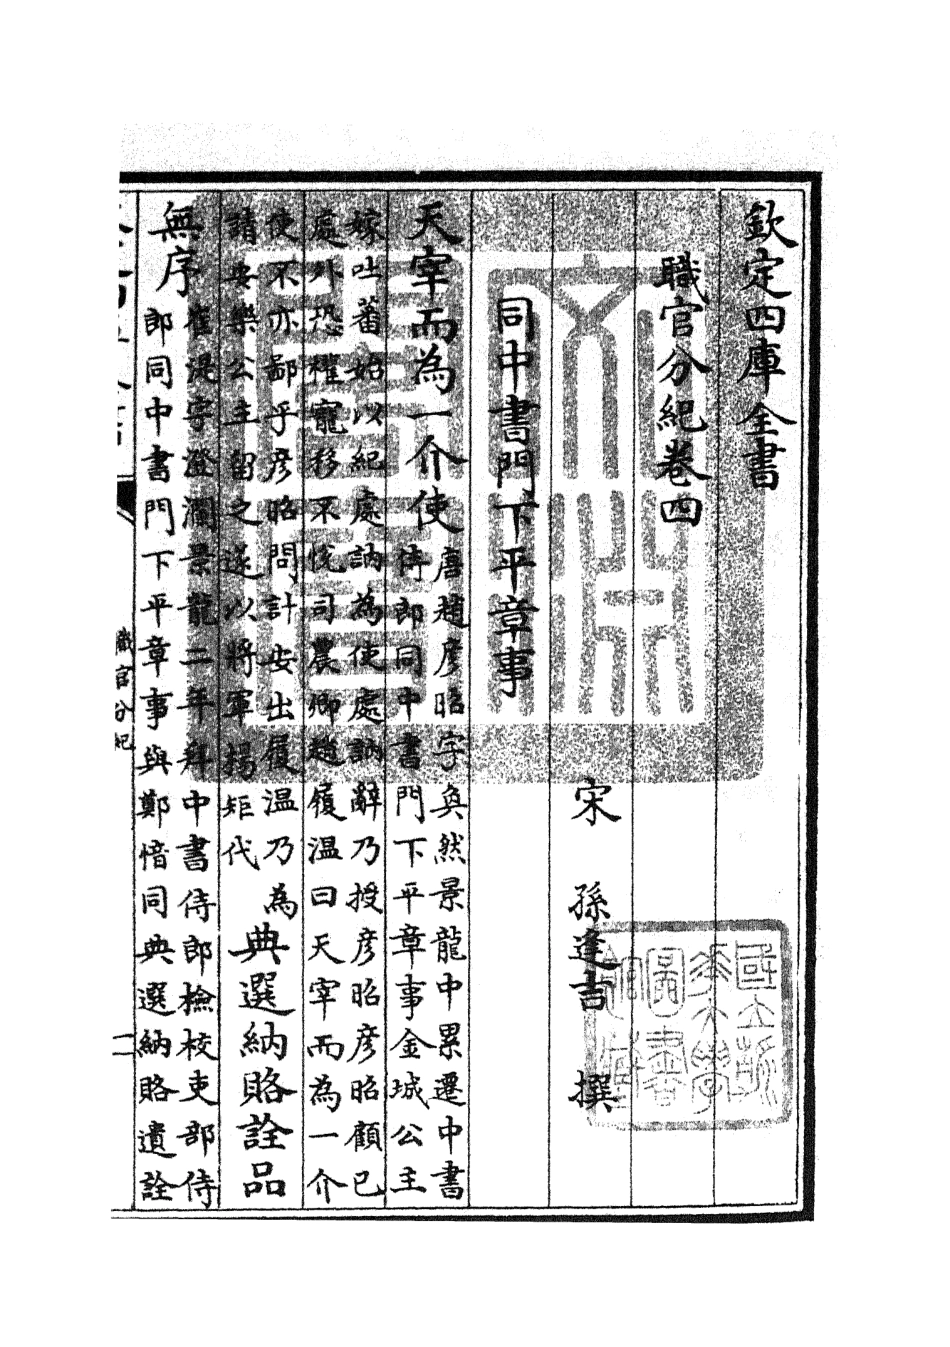 欽定四庫全書
職官分紀卷四
宋 孫逢吉 撰
同中書門下平章事
天宰而為一介使
唐趙彦昭字奐然景龍中累遷中書
侍郎同中書門下平章事金城公主
嫁吐蕃始以紀處訥為使處訥辭乃授彦昭彦昭顧已
處外恐權寵移不悅司農卿趙履温曰天宰而為一介
使不亦鄙乎彦昭問計安出履温乃為
請安樂公主留之遂以將軍楊矩代
典選納賂詮品
無序
崔湜字澄瀾景龍二年拜中書侍郎檢校吏部侍
郎同中書門下平章事與鄭愔同典選納賂遺詮
職官分紀